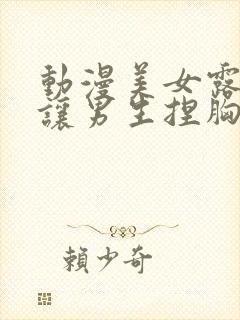 動漫美女露
讓男生捏胸
賴少奇